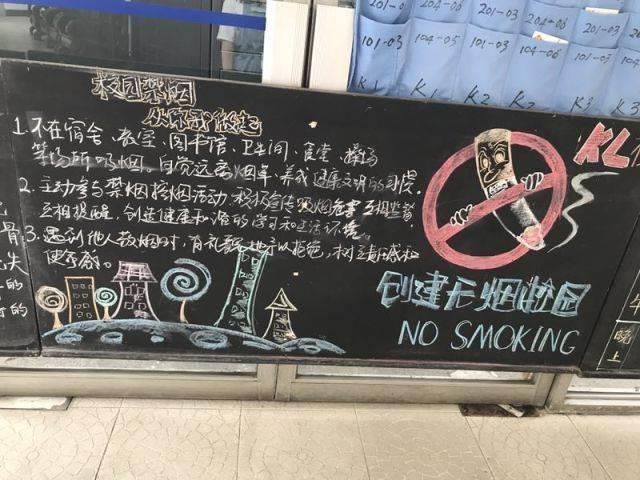 201-0
201-03
204-06
20
101-03
104-05
101-03
104-06
K1
K2
K2
K3
校园禁烟
从你我做起
1.不在宿舍、教室、图书馆、卫生间、食堂、操场
等场所吸烟。自觉远离烟草、养成健康文明的习惯。
2.主动参与禁烟控烟活动,积极宣传吸烟危害,互相监督
互相提醒,创造健康和谐的学习和生活环境。
3.遇到他人敬烟时,有礼貌地予以拒绝,树立责任感和
使命感。
创建无烟校园
NO SMOKING
KL
骨
失
的
的
晚
上